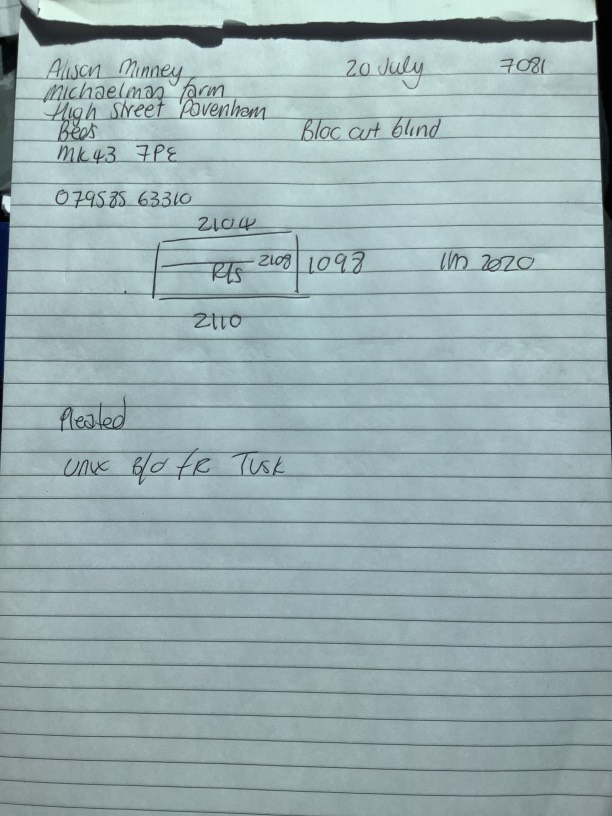 Alison Minney 20 July 7081
Michaelman farm
High street Pavenham
Beds Bloc out blind
MK43 7PE
079585 63310
2104
2108 1098 1m 2020
R/S
2110
Pleated
Unix B/O FR Tusk